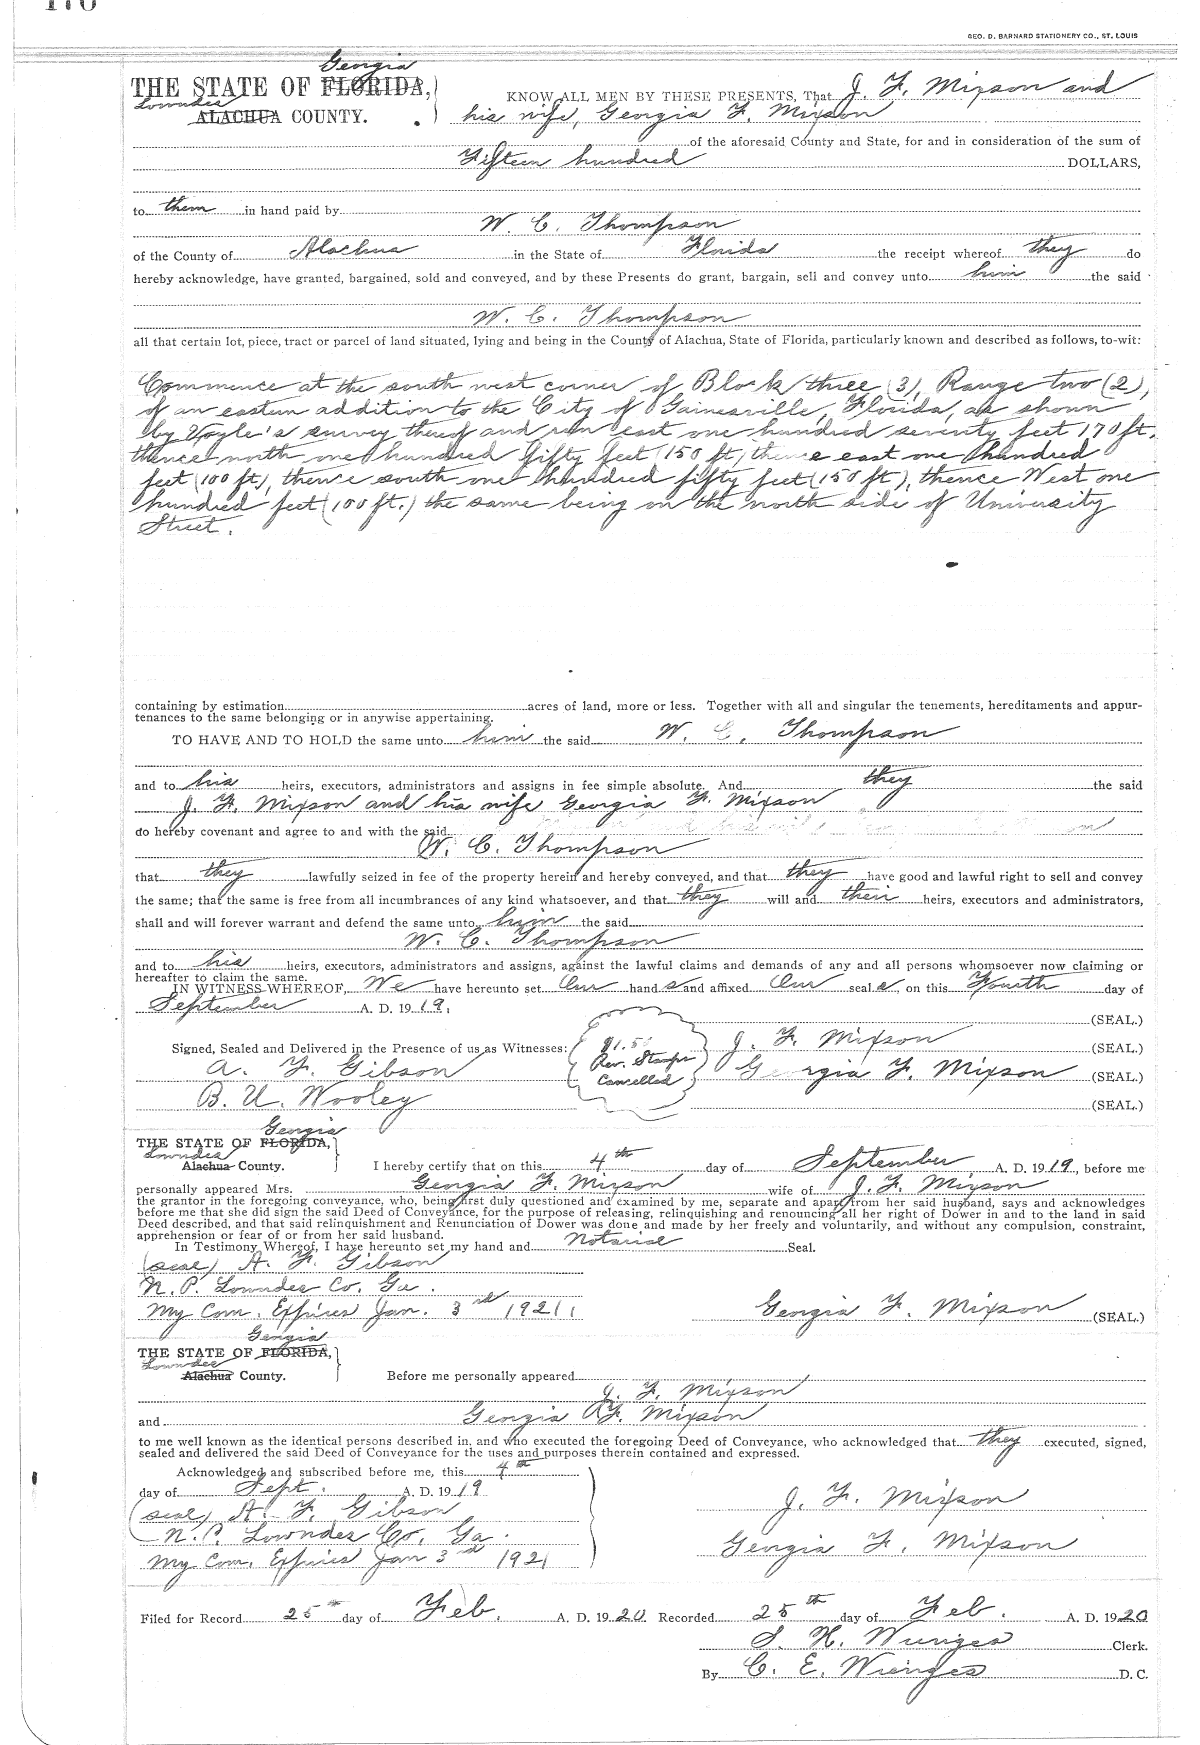 GEO. D. BARNARD STATIONERY CO., ST. LOUIS
Georgia
THE STATE OF FLORIDA,
Lowndes
ALACHUA COUNTY.
KNOW ALL MEN BY THESE PRESENTS, That J. F. Mixson and
his wife, Georgia F. Mixson
of the aforesaid County and State, for and in consideration of the sum of
Fifteen hundred DOLLARS,
to them in hand paid by
W. C. Thompson
of the County of Alachua in the State of Florida the receipt whereof they do
hereby acknowledge, have granted, bargained, sold and conveyed, and by these Presents do grant, bargain, sell and convey unto him the said
W. C. Thompson
all that certain lot, piece, tract or parcel of land situated, lying and being in the County of Alachua, State of Florida, particularly known and described as follows, to-wit:
Commence at the south west corner of Block three (3), Range two (2),
of an eastern addition to the City of Gainesville, Florida, as shown
by Voyle's survey thereof and run east one hundred seventy feet 170 ft.
thence north one hundred fifty feet (150 ft) thence east one hundred
feet (100 ft), thence south one hundred fifty feet (150 ft), thence West one
hundred feet (100 ft.) the same being on the north side of University
Street.
containing by estimation acres of land, more or less. Together with all and singular the tenements, hereditaments and appur-
tenances to the same belonging or in anywise appertaining.
TO HAVE AND TO HOLD the same unto him the said W. C. Thompson
and to his heirs, executors, administrators and assigns in fee simple absolute. And they the said
J. F. Mixson and his wife Georgia F. Mixson
do hereby covenant and agree to and with the said
W. C. Thompson
that they lawfully seized in fee of the property herein and hereby conveyed, and that they have good and lawful right to sell and convey
the same; that the same is free from all incumbrances of any kind whatsoever, and that they will and their heirs, executors and administrators,
shall and will forever warrant and defend the same unto him the said
W. C. Thompson
and to his heirs, executors, administrators and assigns, against the lawful claims and demands of any and all persons whomsoever now claiming or
hereafter to claim the same.
IN WITNESS WHEREOF, We have hereunto set Our hand s and affixed Our seal s on this Fourth day of
September A. D. 19 19.
(SEAL.)
Signed, Sealed and Delivered in the Presence of us as Witnesses: $1.50 J. F. Mixson (SEAL.)
A. F. Gibson Rev. Stamps Cancelled Georgia F. Mixson (SEAL.)
B. U. Wooley (SEAL.)
Georgia
THE STATE OF FLORIDA,
Lowndes
Alachua County.
I hereby certify that on this 4th day of September, A. D. 19 19, before me
personally appeared Mrs. Georgia F. Mixson wife of J. F. Mixson
the grantor in the foregoing conveyance, who, being first duly questioned and examined by me, separate and apart from her said husband, says and acknowledges
before me that she did sign the said Deed of Conveyance, for the purpose of releasing, relinquishing and renouncing all her right of Dower in and to the land in said
Deed described, and that said relinquishment and Renunciation of Dower was done and made by her freely and voluntarily, and without any compulsion, constraint,
apprehension or fear of or from her said husband.
In Testimony Whereof, I have hereunto set my hand and Notarial Seal.
(seal) A. F. Gibson
N. P. Lowndes Co. Ga.
My Com. Expires Jan. 3rd 1921. Georgia F. Mixson (SEAL.)
Georgia
THE STATE OF FLORIDA,
Lowndes
Alachua County.
Before me personally appeared
J. F. Mixson
and Georgia F. Mixson
to me well known as the identical persons described in, and who executed the foregoing Deed of Conveyance, who acknowledged that they executed, signed,
sealed and delivered the said Deed of Conveyance for the uses and purposes therein contained and expressed.
Acknowledged and subscribed before me, this 4th
day of Sept. A. D. 19 19
(seal) A. F. Gibson J. F. Mixson
N. P. Lowndes Co. Ga.
My Com. Expires Jan 3rd 1921 Georgia F. Mixson
Filed for Record 25th day of Feb. A. D. 19 20. Recorded 25th day of Feb. A. D. 19 20
S. H. Wienges Clerk.
By C. E. Wienges D. C.